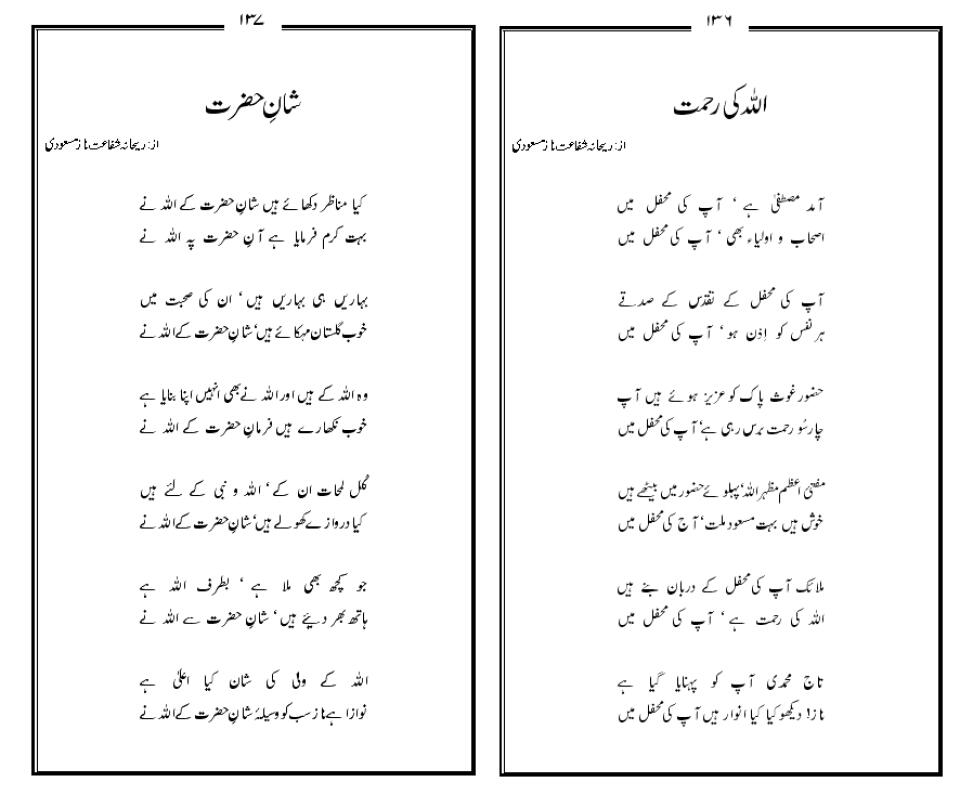 ۱۳۶
اللہ کی رحمت
از: ریحانہ شفاعت ناز مسعودی
آمد مصطفیٰ ہے ‘ آپ کی محفل میں
اصحاب و اولیاء بھی ‘ آپ کی محفل میں
آپ کی محفل کے تقدّس کے صدقے
ہر نفس کو اِذن ہو ‘ آپ کی محفل میں
حضور غوث پاک کو عزیز ہوئے ہیں آپ
چار سُو رحمت برس رہی ہے‘ آپ کی محفل میں
مفتیٔ اعظم مظہر اللہ‘ پہلوئے حضور میں بیٹھے ہیں
خوش ہیں بہت مسعود ملت‘ آج کی محفل میں
ملائک آپ کی محفل کے دربان بنے ہیں
اللہ کی رحمت ہے ‘ آپ کی محفل میں
تاج محمدی آپ کو پہنایا گیا ہے
ناز! دیکھو کیا کیا انوار ہیں آپ کی محفل میں
۱۳۷
شانِ حضرت
از: ریحانہ شفاعت ناز مسعودی
کیا مناظر دکھائے ہیں شانِ حضرت کے اللہ نے
بہت کرم فرمایا ہے آنِ حضرت پہ اللہ نے
بہاریں ہی بہاریں ہیں ‘ ان کی صحبت میں
خوب گلستان مہکائے ہیں‘ شانِ حضرت کے اللہ نے
وہ اللہ کے ہیں اور اللہ نے بھی انہیں اپنا بنایا ہے
خوب نکھارے ہیں فرمانِ حضرت کے اللہ نے
کُل لمحات ان کے ‘ اللہ و نبی کے لئے ہیں
کیا دروازے کھولے ہیں‘ شانِ حضرت کے اللہ نے
جو کچھ بھی ملا ہے ‘ بطرف اللہ ہے
ہاتھ بھر دیئے ہیں ‘ شانِ حضرت سے اللہ نے
اللہ کے ولی کی شان کیا اعلیٰ ہے
نوازا ہے ناز سب کو وسیلۂ شانِ حضرت کے اللہ نے